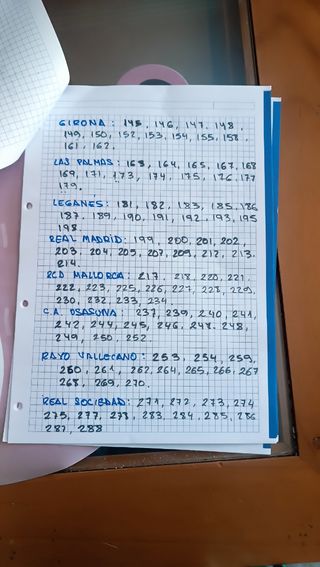 GIRONA: 145, 146, 147, 148,
149, 150, 152, 153, 154, 155, 158
161, 162.
LAS PALMAS: 163, 164, 165, 167, 168
169, 171, 173, 174, 175, 176, 177
179.
LEGANÉS: 181, 182, 183, 185, 186
187, 189, 190, 191, 192, 193, 195
198.
REAL MADRID: 199, 200, 201, 202,
203, 204, 205, 207, 209, 212, 213.
214.
RCD MALLORCA: 217, 218, 220, 221,
222, 223, 225, 226, 227, 228, 229,
230, 232, 233, 234.
C.A. OSASUNA: 237, 239, 240, 241,
242, 244, 245, 246, 248,
249, 250, 252.
RAYO VALLECANO: 253, 254, 259,
260, 261, 262, 264, 265, 266, 267
268, 269, 270.
REAL SOCIEDAD: 271, 272, 273, 274
275, 277, 278, 283, 284, 285, 286
287, 288